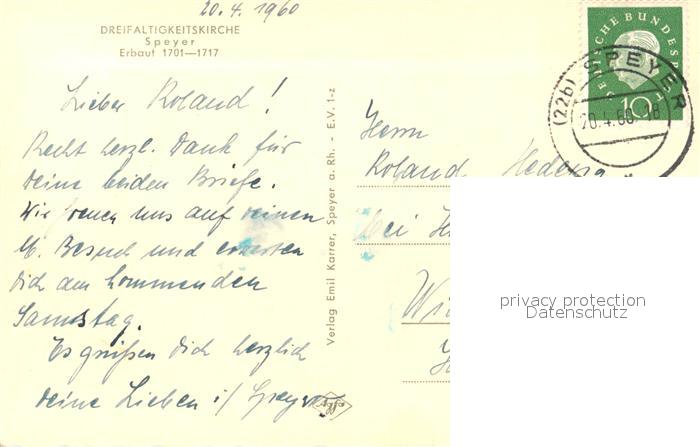 20.4.1960
DREIFALTIGKEITSKIRCHE
Speyer
Erbaut 1701—1717
Lieber Roland!
Recht herzl. Dank für
Deine beiden Briefe.
Wir freuen uns auf deinen
lb. Besuch und erwarten
Dich am kommenden
Samstag.
Es grüßen Dich herzlich
Deine Lieben i/ Speyer.
Verlag Emil Karrer, Speyer a. Rh. - E.V. 1-z
Agfa
DEUTSCHE BUNDESPOST
10
(22b) SPEYER
20.4.60.-18
Herrn
Roland
bei
privacy protection
Datenschutz